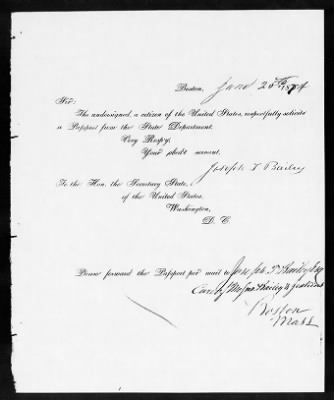 Boston, June 25th 1874
Sir:
The undersigned, a citizen of the United States, respectfully solicits
a Passport from the State Department.
Very Respy.
Your obedt servant.
Joseph T Bailey
To the Hon. the Secretary State,
of the United States,
Washington,
D. C.
Please forward the Passport per mail to Joseph T Bailey Esq
Care of
Boston
Mass